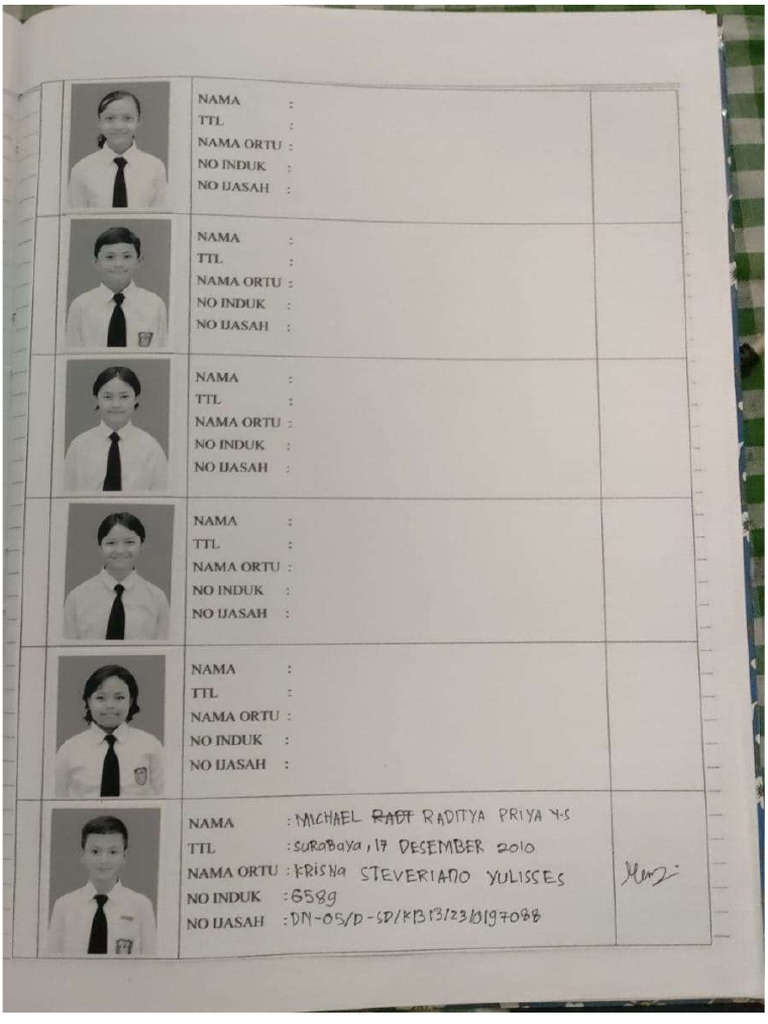 NAMA :
TTL :
NAMA ORTU :
NO INDUK :
NO IJASAH :
NAMA :
TTL :
NAMA ORTU :
NO INDUK :
NO IJASAH :
NAMA :
TTL :
NAMA ORTU :
NO INDUK :
NO IJASAH :
NAMA :
TTL :
NAMA ORTU :
NO INDUK :
NO IJASAH :
NAMA :
TTL :
NAMA ORTU :
NO INDUK :
NO IJASAH :
NAMA : MICHAEL RADITYA PRIYA Y.S
TTL : SURABAYA, 17 DESEMBER 2010
NAMA ORTU : KRISNA STEVERIANO YULISSES
NO INDUK : 6589
NO IJASAH : DN-05/D-SD/K13/23/0197088